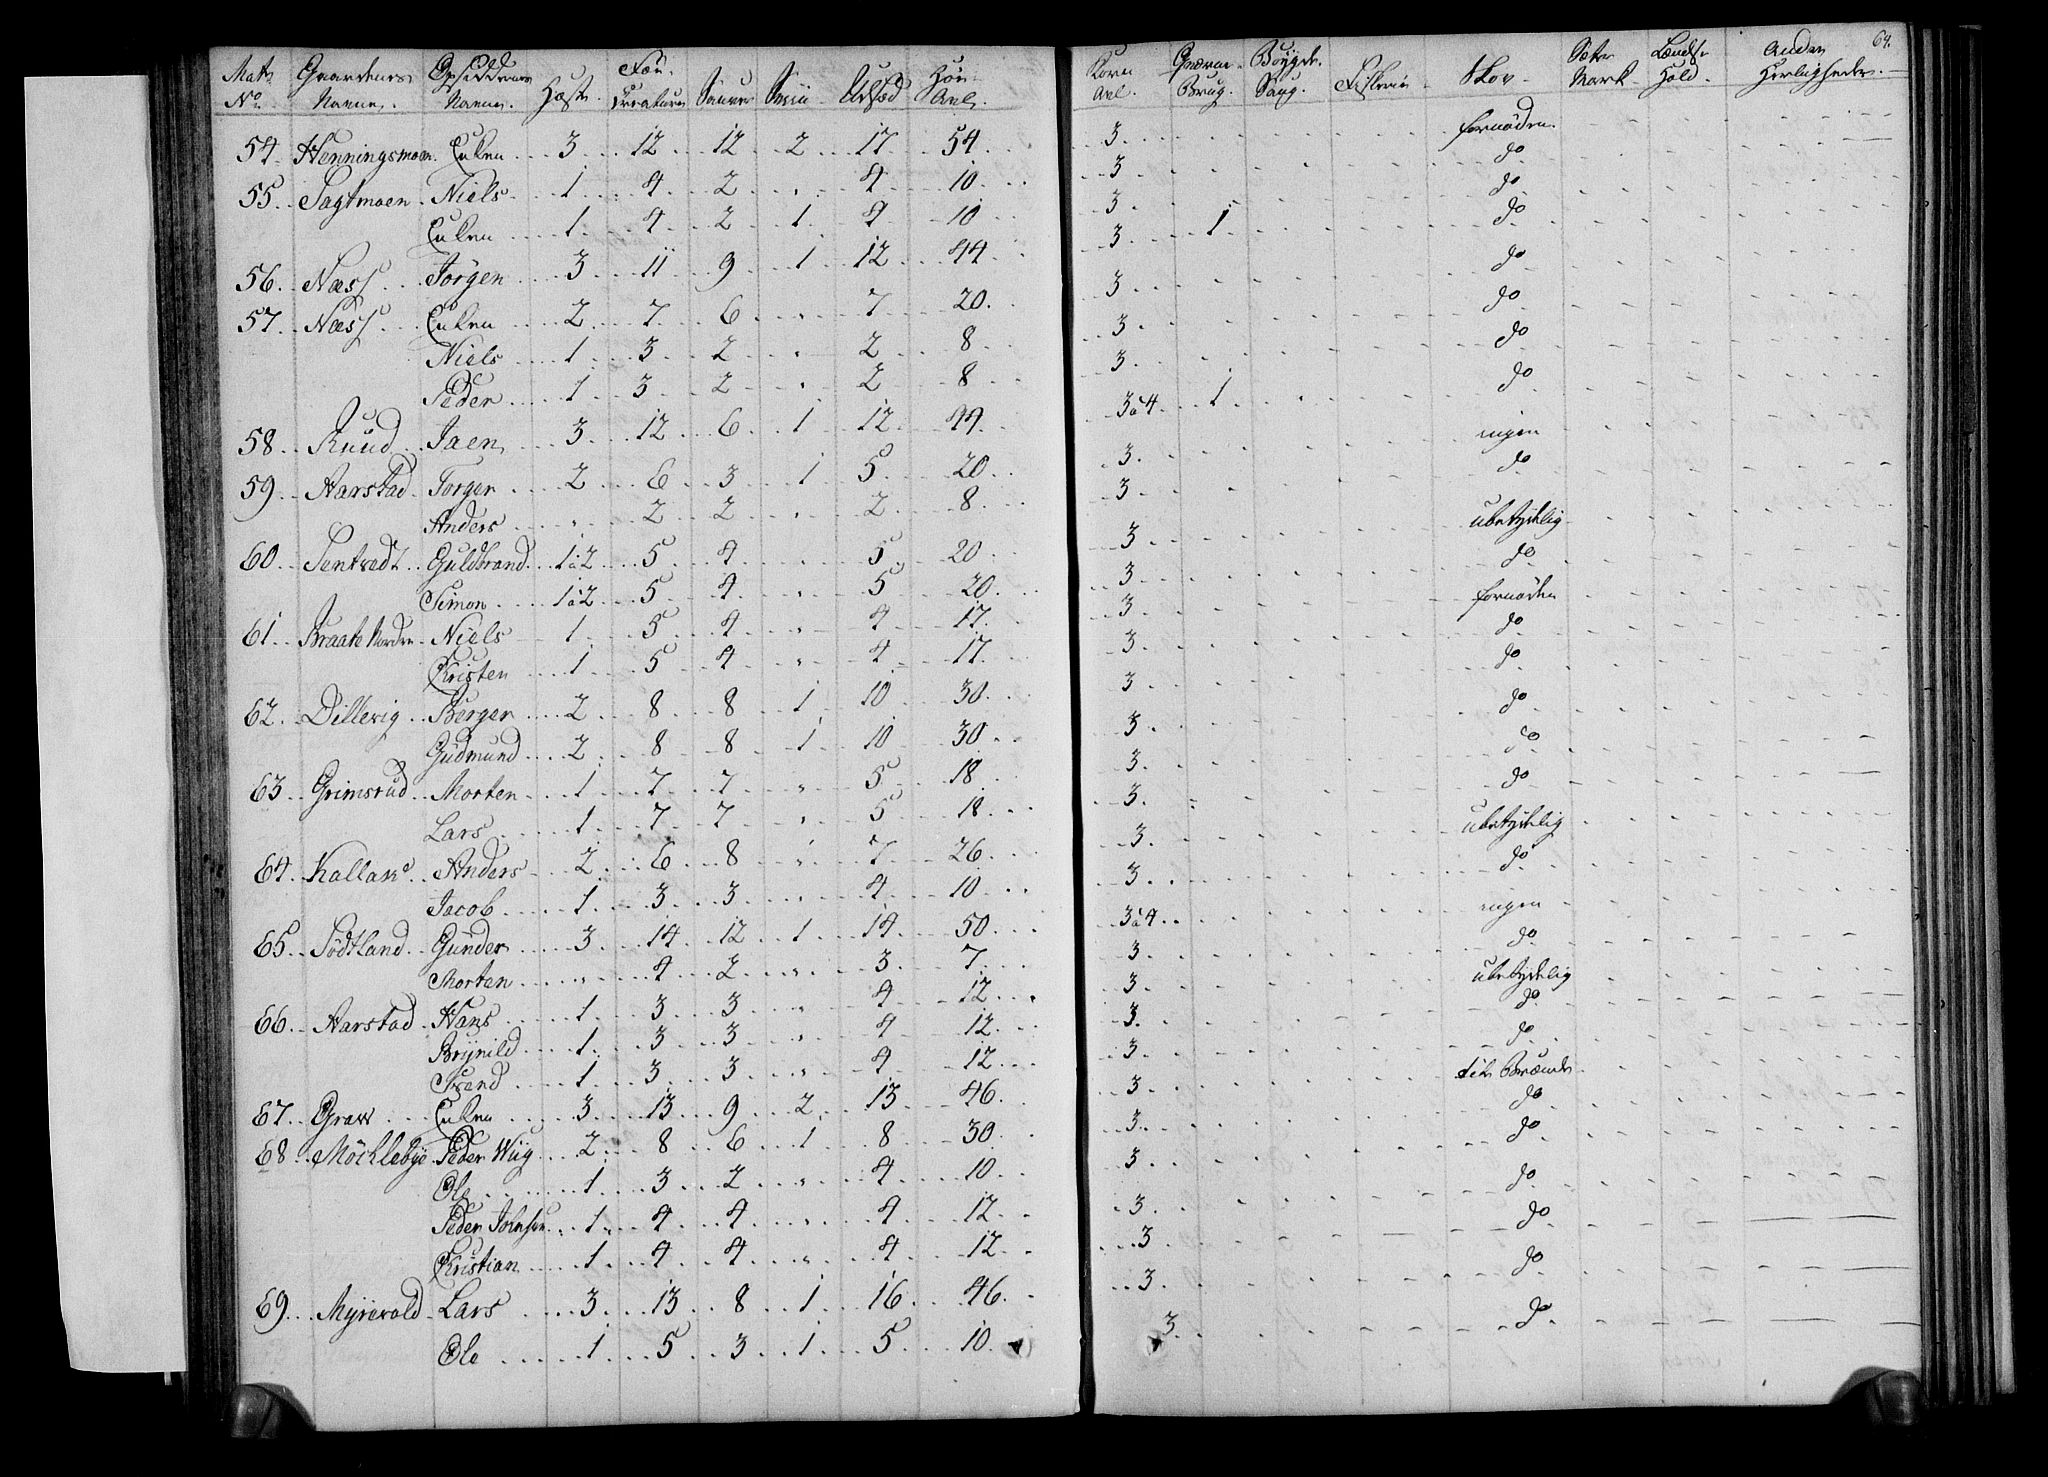 Mat: No. Gaardenes Navne. Opsiddernes Navne. Heste. Fæe-Creaturer Sauer Sviin Udsæd Høe Avl. Korn Avl. Qværne Brug. Bøygde Saug. Fiskerie Skov. Sæter Mark. Lændse Hold. Andre Herligheder. 64.
54. Henningsmoen. Even 3 12 12 2 17 54 3 fornøden.
55. Sagtmoen Niels 1 4 2 " 4 10 3 do
Even 1 4 2 1 4 10 3 do
56. Næss Jørgen 3 11 9 1 12 44 3 1 do
57. Næss Even 2 7 6 " 7 20 3 do
Niels 1 3 2 " 2 8 3 do
Peder 1 3 2 " 2 8 3 do
58. Ruud Jaen 3 12 6 1 12 44 3à4 1 do
59. Aarstad Torger 2 6 3 1 5 20 3 ingen
Anders " 2 2 " 2 8 3 do
60. Guldbrand 1à2 5 4 " 5 20 3 ubetydelig
Simon 1à2 5 4 " 5 20 3 do
61. Braate Nordre Niels 1 5 4 " 4 17 3 fornøden
Kristen 1 5 4 " 4 17 3 do
62. Dillevig Berger 2 8 8 1 10 30 3 do
Gudmund 2 8 8 1 10 30 3 do
63. Grimsrud Morten 1 7 7 " 5 18 3 do
Lars 1 7 7 " 5 18 3 do
64. Kallak Anders 2 6 8 " 7 26 3 ubetydelig
Jacob 1 3 3 " 4 10 3 do
65. Sødtland Gunder 3 14 12 1 14 50 3à4 ingen
Morten " 4 2 " 3 7 3 do
66. Aarstad Hans 1 3 3 " 4 12 3 ubetydelig
Brynild 1 3 3 " 4 12 3 do
Svend 1 3 3 " 4 12 3 do
67. Graw Even 3 13 9 2 13 46 3 til Brænde
68. Møchlebye Peder Wiig 2 8 6 1 8 30 3 do
Ole 1 3 2 " 4 10 3 do
Peder Johnsen 1 4 4 " 4 12 3 do
Kristian 1 4 4 " 4 12 3 do
69. Myrevold Lars 3 13 8 1 16 46 3 do
Ole 1 5 3 1 5 10 3 do